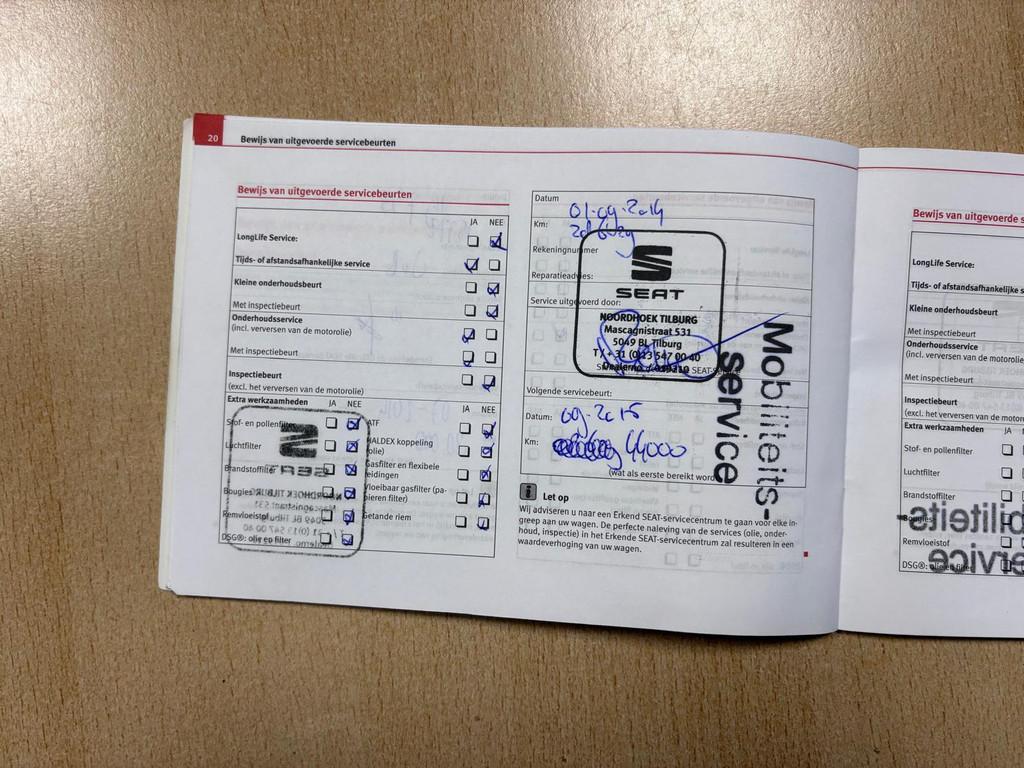 20 Bewijs van uitgevoerde servicebeurten
Bewijs van uitgevoerde servicebeurten
JA NEE
LongLife Service:
Tijds- of afstandsafhankelijke service
Kleine onderhoudsbeurt
Met inspectiebeurt
Onderhoudsservice
(incl. verversen van de motorolie)
Met inspectiebeurt
Inspectiebeurt
(excl. het verversen van de motorolie)
Extra werkzaamheden JA NEE
JA NEE
Stof- en pollenfilter
Luchtfilter
Brandstoffilter
Bougies
Remvloeistof
DSG®: olie en filter
ATF
HALDEX koppeling
(olie)
Gasfilter en flexibele
leidingen
Vloeibaar gasfilter (pa-
pieren filter)
Getande riem
Datum
01-09-2014
Km:
Rekeningnummer
Reparatieadvies:
Service uitgevoerd door:
SEAT
NOORDHOEK TILBURG
Mascagnistraat 531
5049 BL Tilburg
T + 31 (0)13 547 00 40
Dealerno.
Mobiliteits-
service
Volgende servicebeurt:
Datum: 09-2015
Km: 44000
(wat als eerste bereikt wordt
i Let op
Wij adviseren u naar een Erkend SEAT-servicecentrum te gaan voor elke in-
greep aan uw wagen. De perfecte naleving van de services (olie, onder-
houd, inspectie) in het Erkende SEAT-servicecentrum zal resulteren in een
waardeverhoging van uw wagen.
Bewijs van uitgevoerde s
LongLife Service:
Tijds- of afstandsafhankelijke s
Kleine onderhoudsbeurt
Met inspectiebeurt
Onderhoudsservice
(incl. verversen van de motorolie
Met inspectiebeurt
Inspectiebeurt
(excl. het verversen van de motor
Extra werkzaamheden JA
Stof- en pollenfilter
Luchtfilter
Brandstoffilter
Bougies
Remvloeistof
DSG®: olie en filte